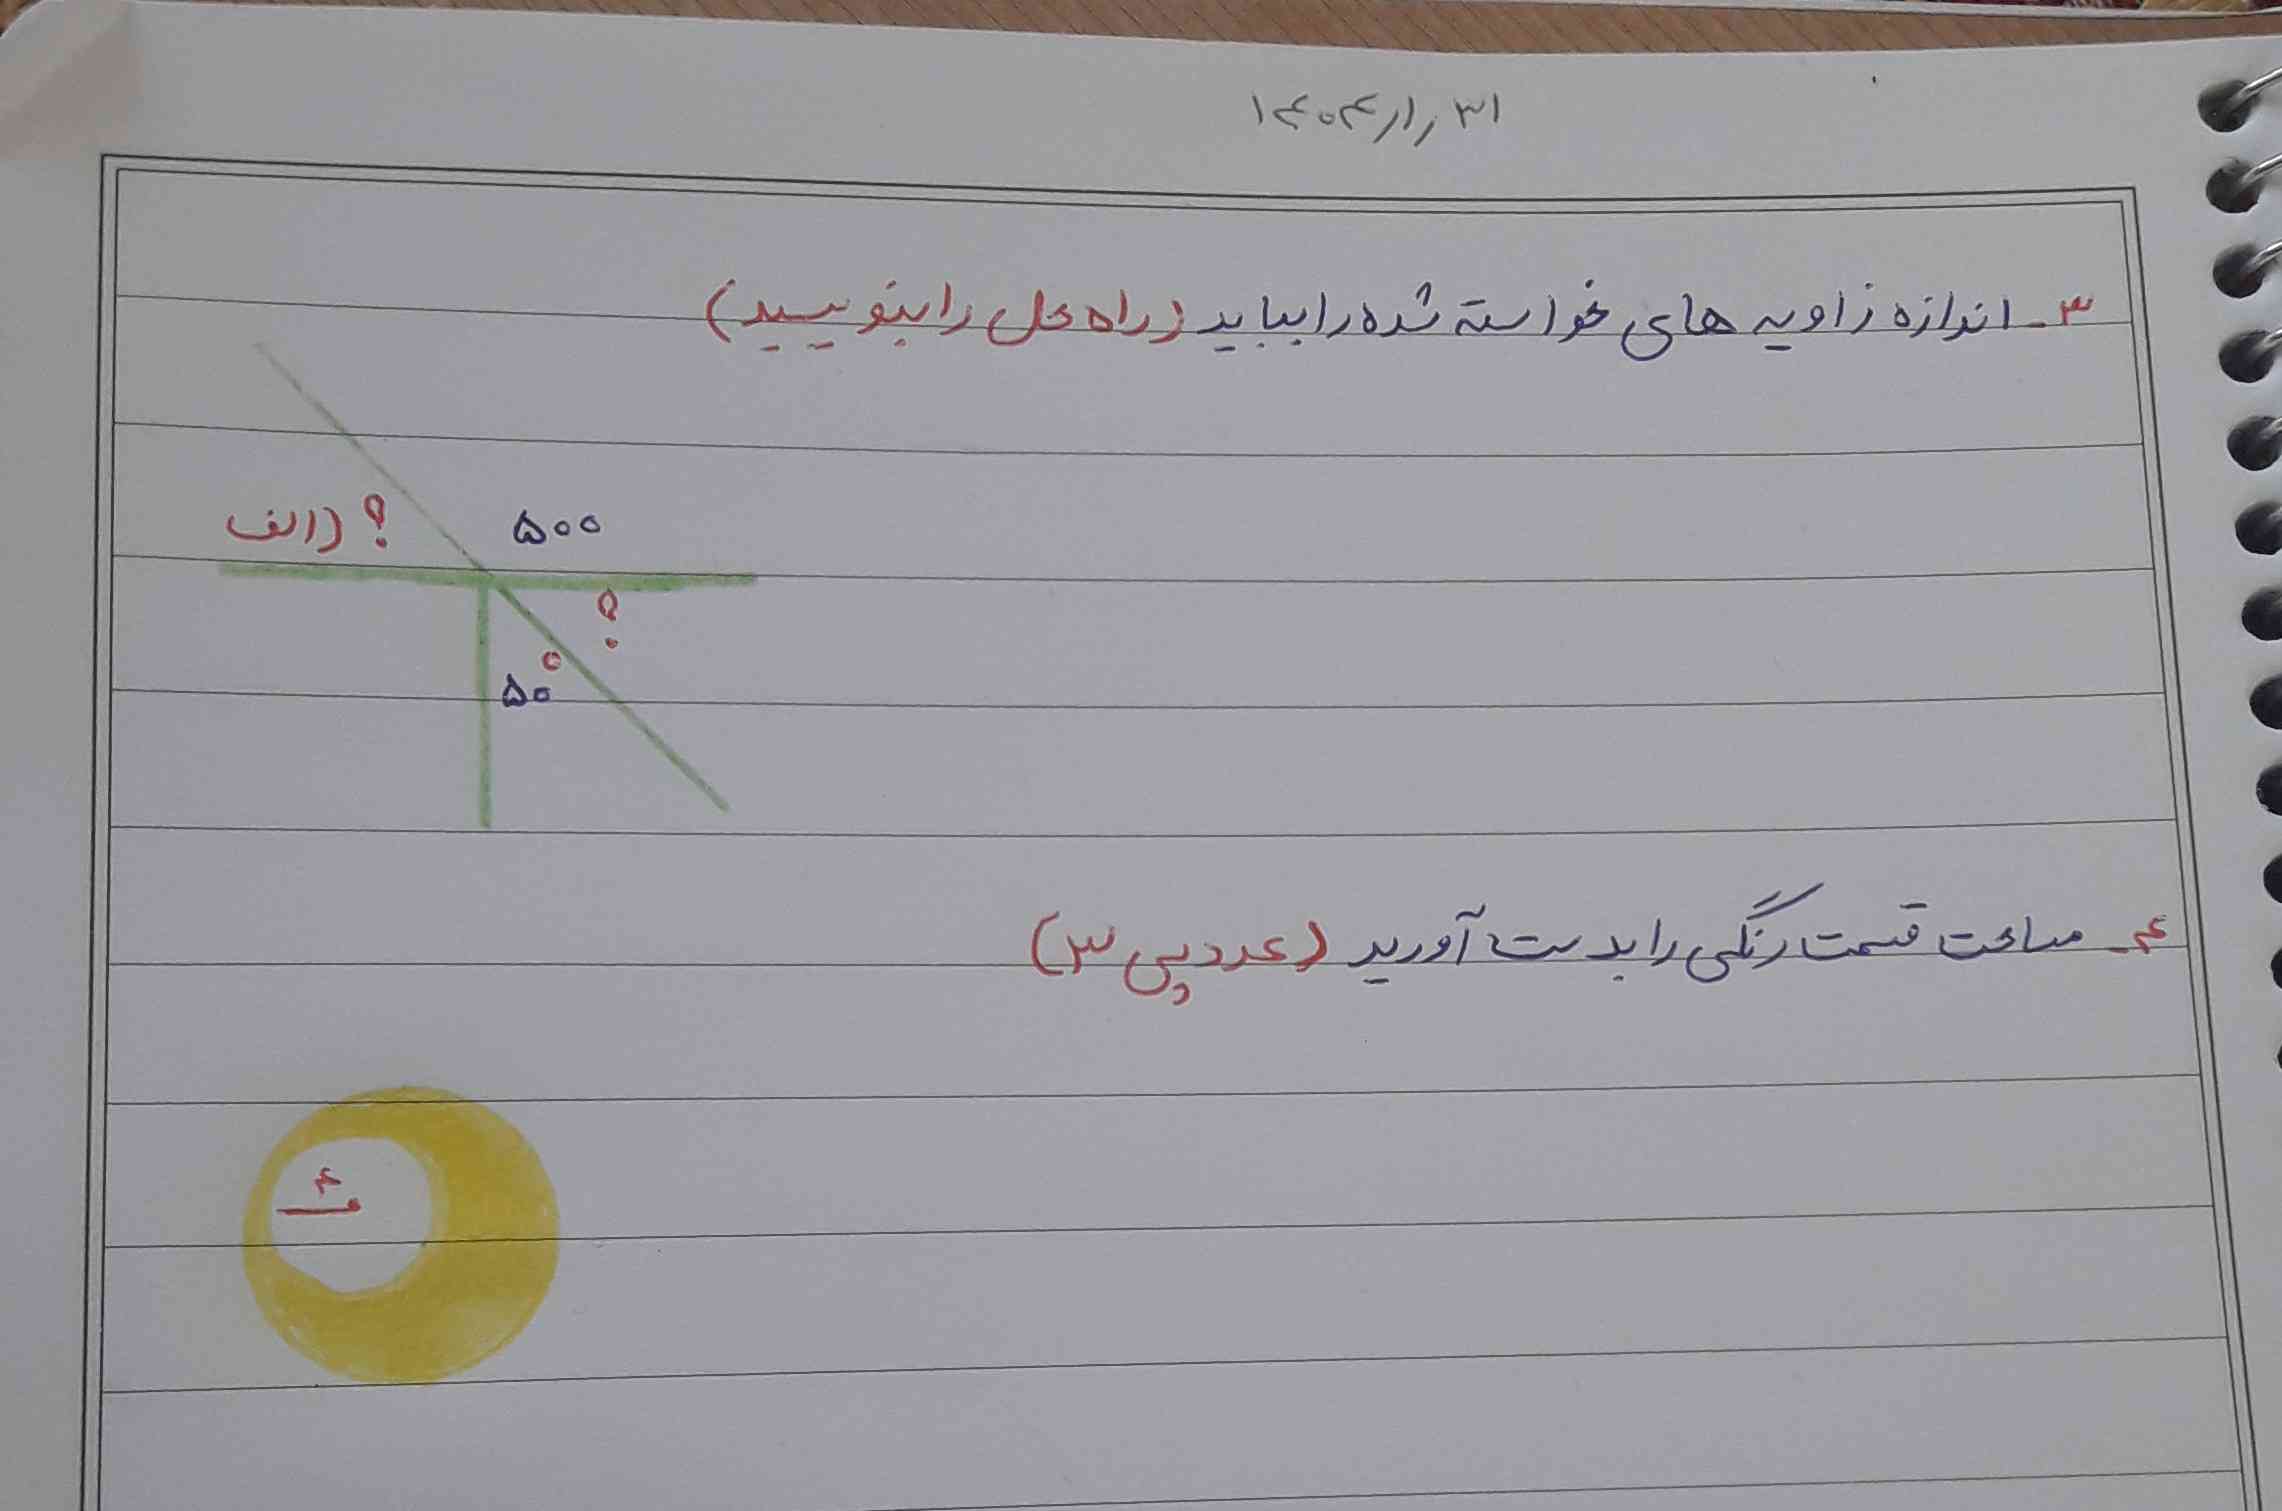 ۱۴۰۴/۱/۳۱
۳_ اندازه زاویه های خواسته شده را بیابید (راه حل را بنویسید)
الف) ؟ ۵۰۰
؟
۵۰°
۴_ مساحت قسمت رنگی را بدست آورید (عدد پی ۳)
۴